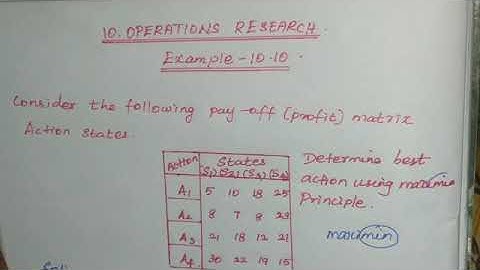 10. OPERATIONS RESEARCH.
Example-10.10.
Consider the following pay-off (profit) matrix
Action states.
Action States
(S1) (S2) (S3) (S4)
A1 5 10 18 25
A2 8 7 8 23
A3 21 18 12 21
A4 30 22 19 15
Determine best
action using maximin
Principle.
maximin